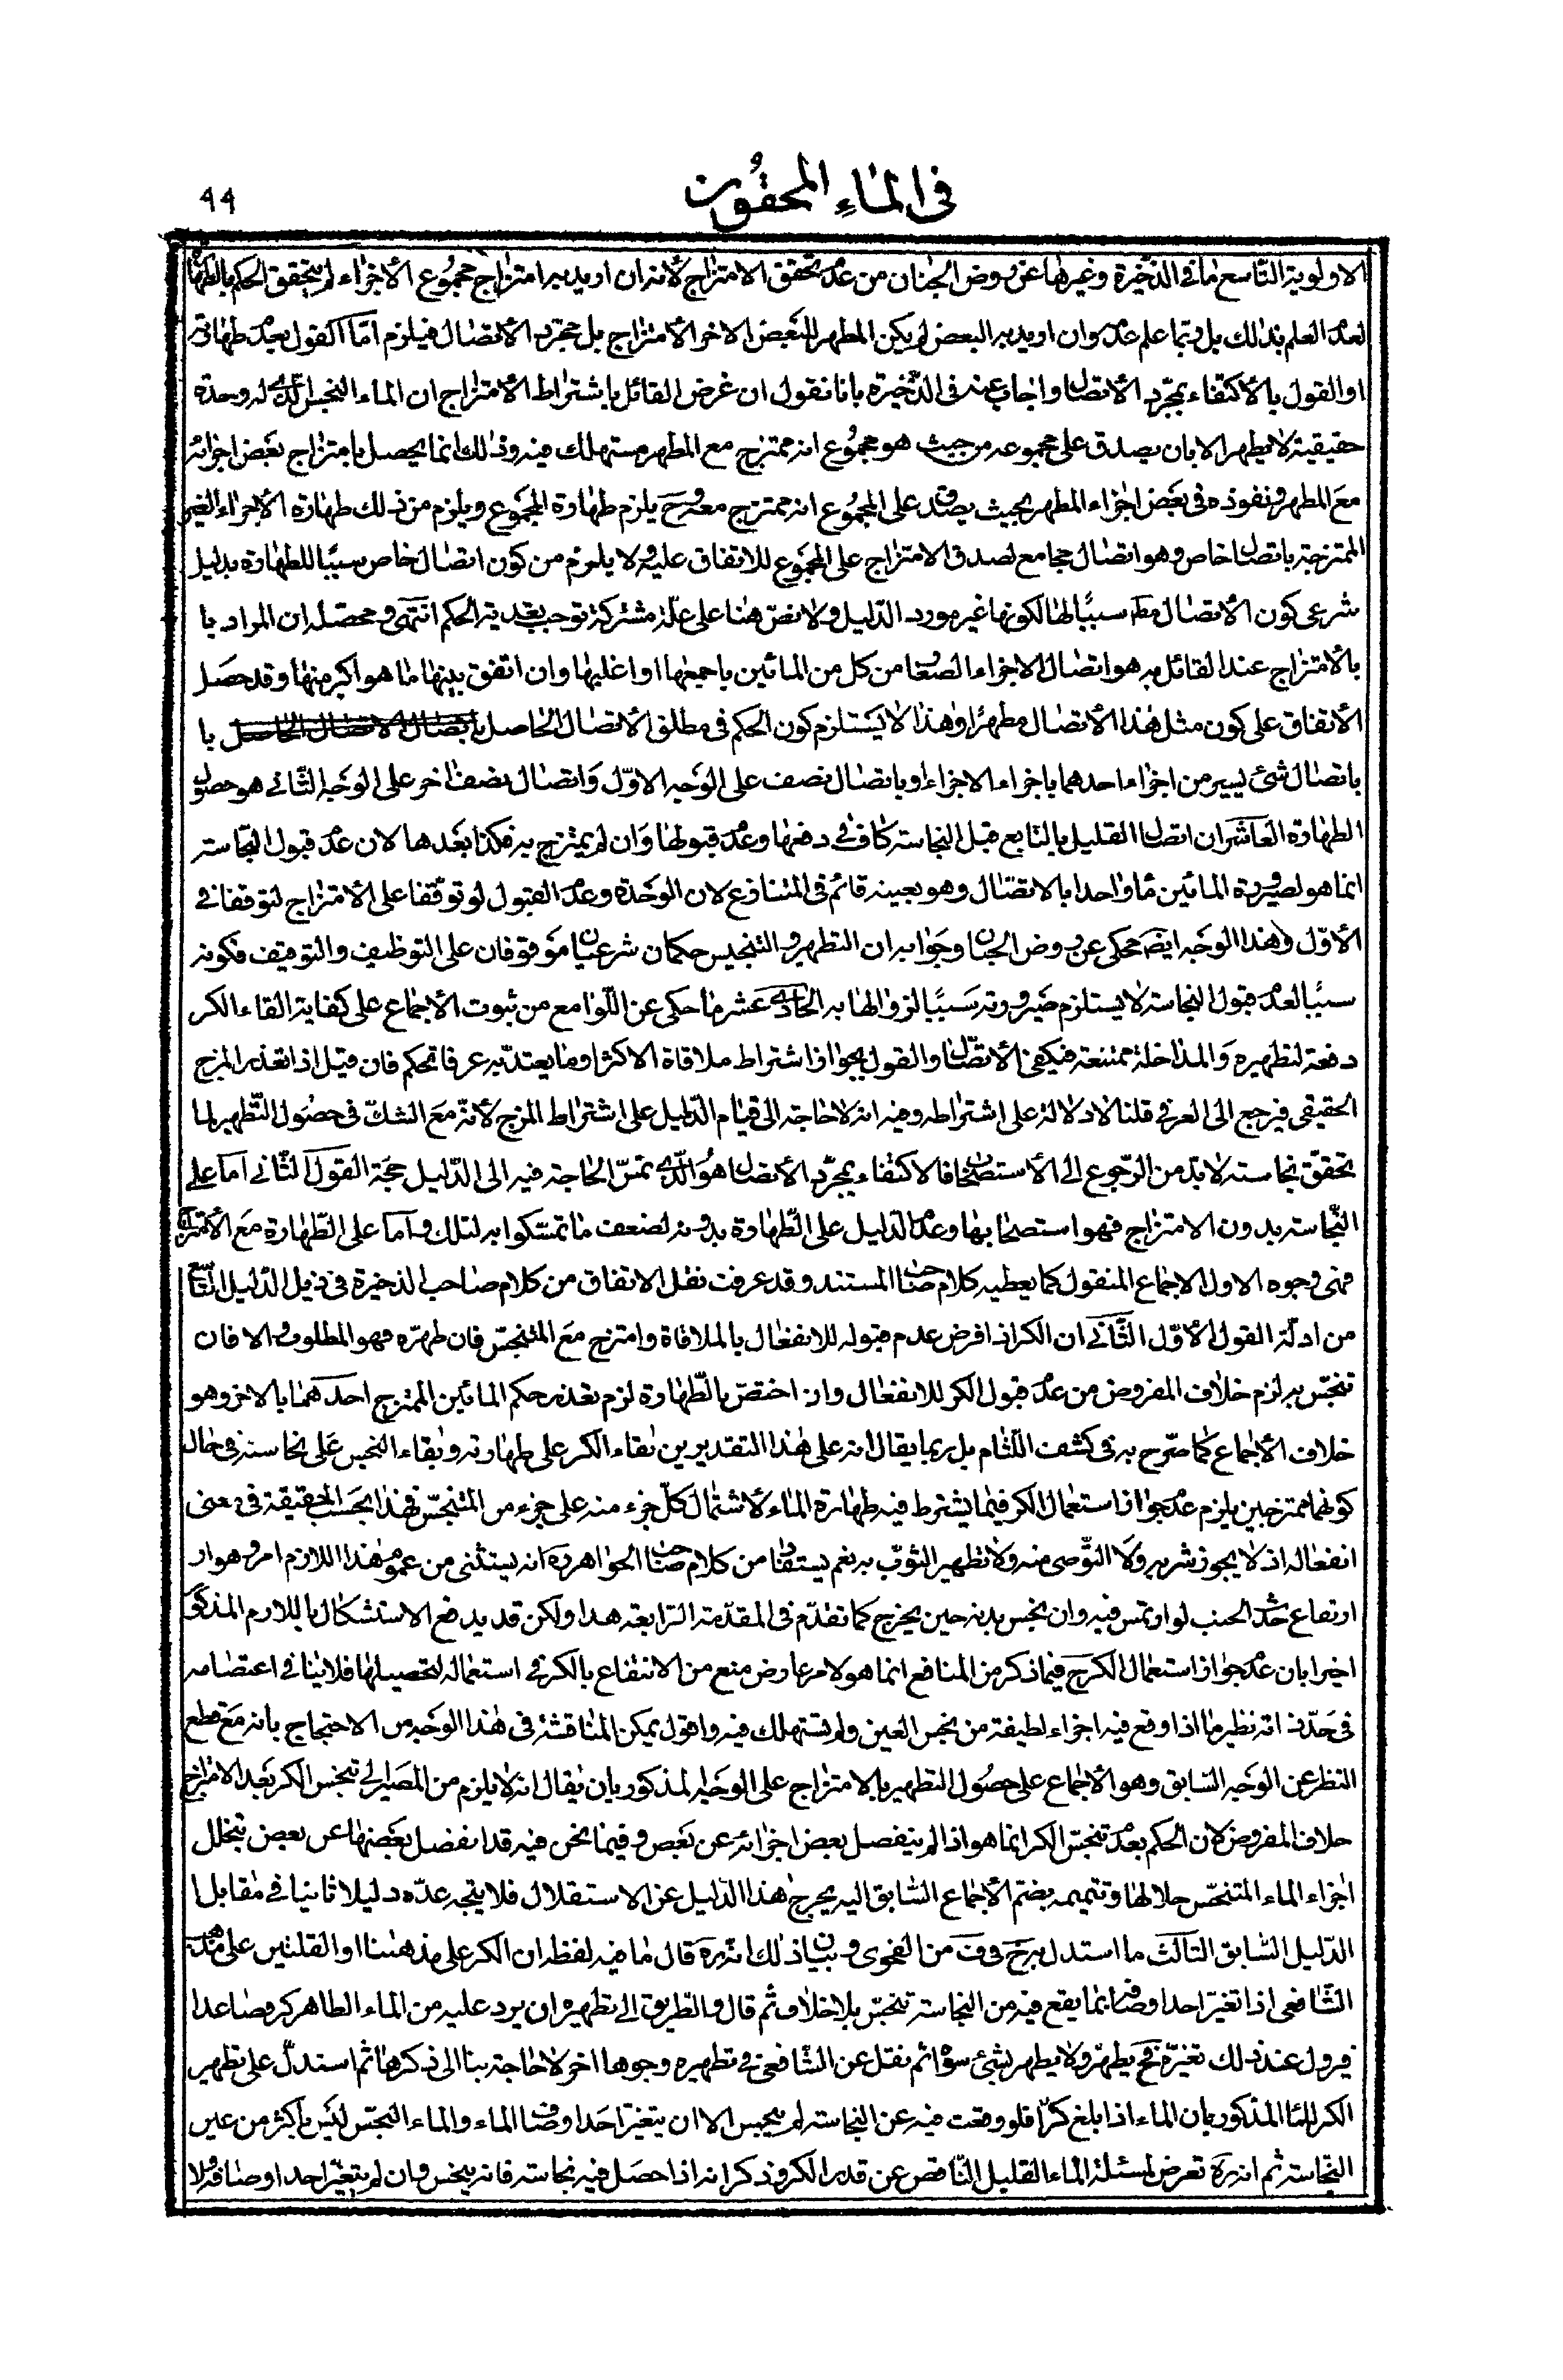 في الماء المحقون
٩٩
الاولوية التاسع ما في الذخيرة وغيرها عن روض الجنان من عدم تحقق الامتزاج لأنه ان اريد به امتزاج مجموع الأجزاء لم يتحقق الحكم بالطهارة
لعدم العلم بذلك بل ربما علم عدمه وان اريد به البعض لم يكن المطهر للبعض الاخر الأمتزاج بل مجرد الأتصال فيلزم امّا القول بعدم طهارته
او القول بالأكتفاء بمجرّد الأتصال واجاب عنه في الذّخيرة بانا نقول ان غرض القائل باشتراط الأمتزاج ان الماء النجس الّذي له وحدة
حقيقية لا يطهر الا بان يصدق على مجموعه من حيث هو مجموع انه ممتزج مع المطهر مستهلك فيه وذلك انما يحصل بامتزاج بعض اجزائه
مع المطهر ونفوذه في بعض اجزاء المطهر بحيث يصدق على المجموع انه ممتزج معه وح يلزم طهارة المجموع ويلزم من ذلك طهارة الأجزاء الغير
الممتزجة باتصال خاص وهو اتصال مجامع لصدق الامتزاج على المجموع للاتفاق عليه ولا يلزم من كون اتصال خاص سببًا للطهارة بدليل
شرعى كون الأتصال مطلقا سببًا لها لكونها غير مورد الدّليل ولا نصّ هنا على علّة مشتركة توجب تعدية الحكم انتهى ومحصّله ان المراد با
بالأمتزاج عند القائل به هو اتصال الاجزاء الصغار من كل من المائين باجمعها او اغلبها وان اتفق بينها ما هو اكبر منها وقد حصل
الأتفاق على كون مثل هذا الأتصال مطهرًا وهذا لا يستلزم كون الحكم في مطلق الأتصال الحاصل باتصال الاتصال الحاصل با
باتصال شئ يسير من اجزاء احدهما باجزاء الاجزاء او باتصال نصف على الوجه الاوّل واتصال نصف اخر على الوجه الثّانى هو حصول
الطهارة العاشر ان اتصال القليل بالنابع قبل النجاسة كاف في دفعها وعدم قبولها وان لم يمتزج به فكذا بعدها لان عدم قبول النّجاسة
انما هو لصيرورة المائين ماء واحدا بالاتصال وهو بعينه قائم في المتنازع لان الوحدة وعدم القبول لو توقّفا على الأمتزاج لتوقفا في
الأوّل وهذا الوجه ايضا محكى عن روض الجنان وجوابه ان التطهير والتنجيس حكمان شرعيان موقوفان على التوظيف والتوقيف فكونه
سببًا لعدم قبول النجاسة لا يستلزم صيرورته سببًا لزوالها به الحادي عشر ما حكى عن اللّوامع من ثبوت الأجماع على كفاية القاء الكر
دفعة لتطهيره والمداخلة ممتنعة فيكفى الأتصّال والقول بجواز اشتراط ملاقاة الاكثر او ما يعتدّ به عرفا تحكم فان قيل اذا تعذر المزج
الحقيقى فيرجع الى العرفى قلنا لا دلالة على اشتراطه وفيه انه لا حاجة الى قيام الدّليل على اشتراط المزج لأنّه مع الشكّ في حصول التّطهير لما
تحقّق نجاسته لا بدّ من الرّجوع الى الأستصحاب فالاكتفاء بمجرّد الأتصال هو الّذي تمسّ الحاجة فيه الى الدّليل حجّة القول الثّانى امّا على
النّجاسة بدون الامتزاج فهو استصحابها وعدم الدّليل على الطّهارة بدونه لضعف ما تمسّكوا به لتلك وامّا على الطّهارة مع الأمتزاج
فمن وجوه الاول الاجماع المنقول كما يعطيه كلام صاحب المستند وقد عرفت نقل الاتفاق من كلام صاحب الذخيرة في ذيل الدّليل التّاسع
من ادلّة القول الأوّل الثّاني ان الكر اذا فرض عدم قبوله للانفعال بالملاقاة وامتزج مع المتنجّس فان طهرّه فهو المطلوب والا فان
تنجّس به لزم خلاف المفروض من عدم قبول الكر للانفعال وان اختصّ بالطّهارة لزم تعذر حكم المائين الممتزج احدهما بالاخر وهو
خلاف الأجماع كما صّرح به في كشف اللّثام بل ربما يقال انه على هذا التقدير من بقاء الكر على طهارته وبقاء النجس على نجاسته في حال
كونهما ممتزجين يلزم عدم جواز استعمال الكر فيما يشترط فيه طهارة الماء لأشتمال كلّ جزء منه على جزء من المتنجّس فهذا بحسب الحقيقة في معنى
انفعاله اذ لا يجوز شربه ولا التّوضى منه ولا تطهير الثوب به نعم يستفاد من كلام صاحب الجواهر ره انه يستثنى من عموم هذا اللازم امر وهو ار
ارتفاع حدث الجنب لو ارتمس فيه وان نجس بدنه حين يخرج كما تقدّم في المقدّمة الرّابعة هذا ولكن قد يدفع الاستشكال باللازم المذكور
اخيرا بان عدم جواز استعمال الكر ح فيما ذكر من المنافع انما هو لامر عارض منع من الانتفاع بالكر في استعماله لتحصيلها فلا ينافى اعتصامه
في حدّ ذاته نظير ما اذا وقع فيه اجزاء لطيفة من نجس العين ولم تستهلك فيه واقول يمكن المناقشة في هذا الوجه من الاحتجاج بانه مع قطع
النظر عن الوجه السّابق وهو الأجماع على حصول التطهير بالامتزاج على الوجه المذكور بان يقال انه لا يلزم من المصير الى تنجس الكر بعد الامتزاج
خلاف المفروض لان الحكم بعدم تنجّس الكر انما هو اذا لم ينفصل بعض اجزائه عن بعض وفيما نحن فيه قد انفصل بعضها عن بعض بتخلل
اجزاء الماء المتنجّس خلالها وتتميمه بضمّ الأجماع السّابق اليه يخرج هذا الدّليل عن الاستقلال فلا يتجه عدّه دليلا ثانيا في مقابل ا
الدّليل السّابق الثالث ما استدل به من الفحوى وبيان ذلك انّه ره قال ما فيه لفظه ان الكر على مذهبنا او القلتين على مذهب
الشّافعى اذا تغيّر احد اوصافه بما يقع فيه من النجاسة تنجّس بلا خلاف ثم قال والطّريق الى تطهيره ان يرد عليه من الماء الطاهر كر فصاعدا
فيزول عند ذلك تغيّره فح يطهر ولا يطهر بشئ سواه ثم نقل عن الشّافعى في تطهيره وجوها اخر لا حاجة بنا الى ذكرها ثم استدلّ على تطهير
الكر للماء المذكور بان الماء اذا بلغ كرّا فلو وقعت فيه عين النجاسة لم ينجس الا ان يتغيّر احد اوصاف الماء والماء النجّس ليس باكثر من عين
النجاسة ثم انه ره تعرض لمسئلة الماء القليل النّاقص عن قدر الكر وذكر انه اذا حصل فيه نجاسة فانه ينجس وان لم يتغيّر احد اوصافه ولا